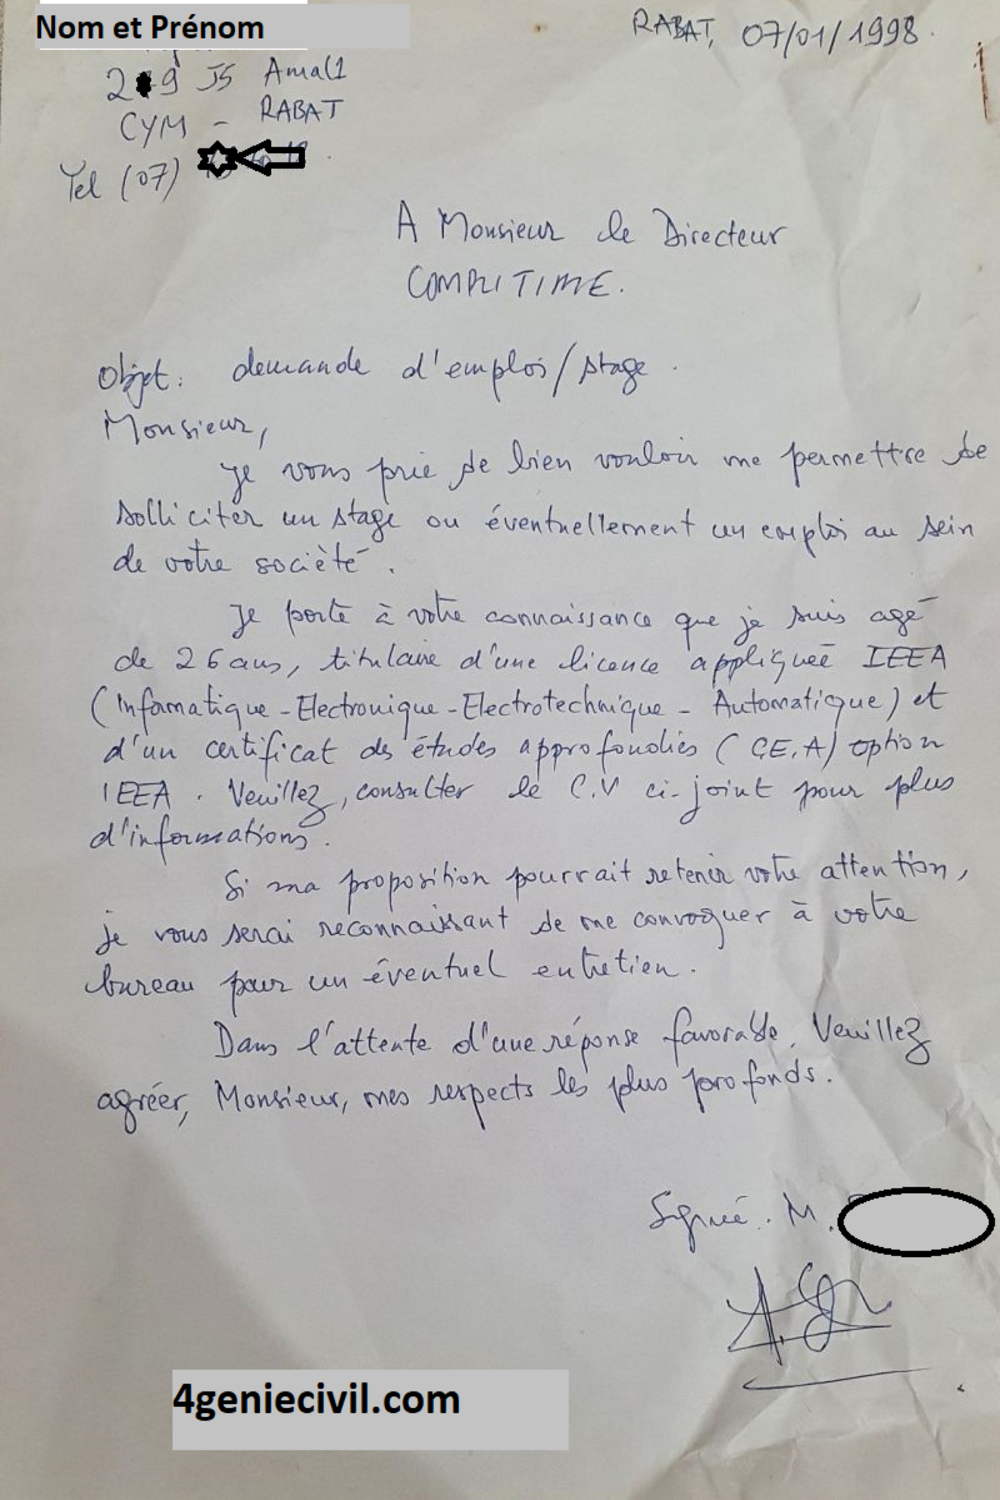 Nom et Prénom
RABAT, 07/01/1998.
9 J5 Amal1
CYM - RABAT
Tel (07)
A Monsieur le Directeur
COMPUTIME.
Objet: demande d'emplois/stage.
Monsieur,
je vous prie de bien vouloir me permettre de
solliciter un stage ou éventuellement un emploi au sein
de votre société.
Je porte à votre connaissance que je suis agé
de 26 ans, titulaire d'une licence appliqueé IEEA
(Informatique - Electronique - Electrotechnique - Automatique) et
d'un certificat des études approfondies (C.E.A) option
IEEA. Veuillez, consulter le C.V ci-joint pour plus
d'informations.
Si ma proposition pourrait retenir votre attention,
je vous serai reconnaissant de me convoquer à votre
bureau pour un éventuel entretien.
Dans l'attente d'une réponse favorable. Veuillez
agréer, Monsieur, mes respects les plus profonds.
Signé. M.
4geniecivil.com